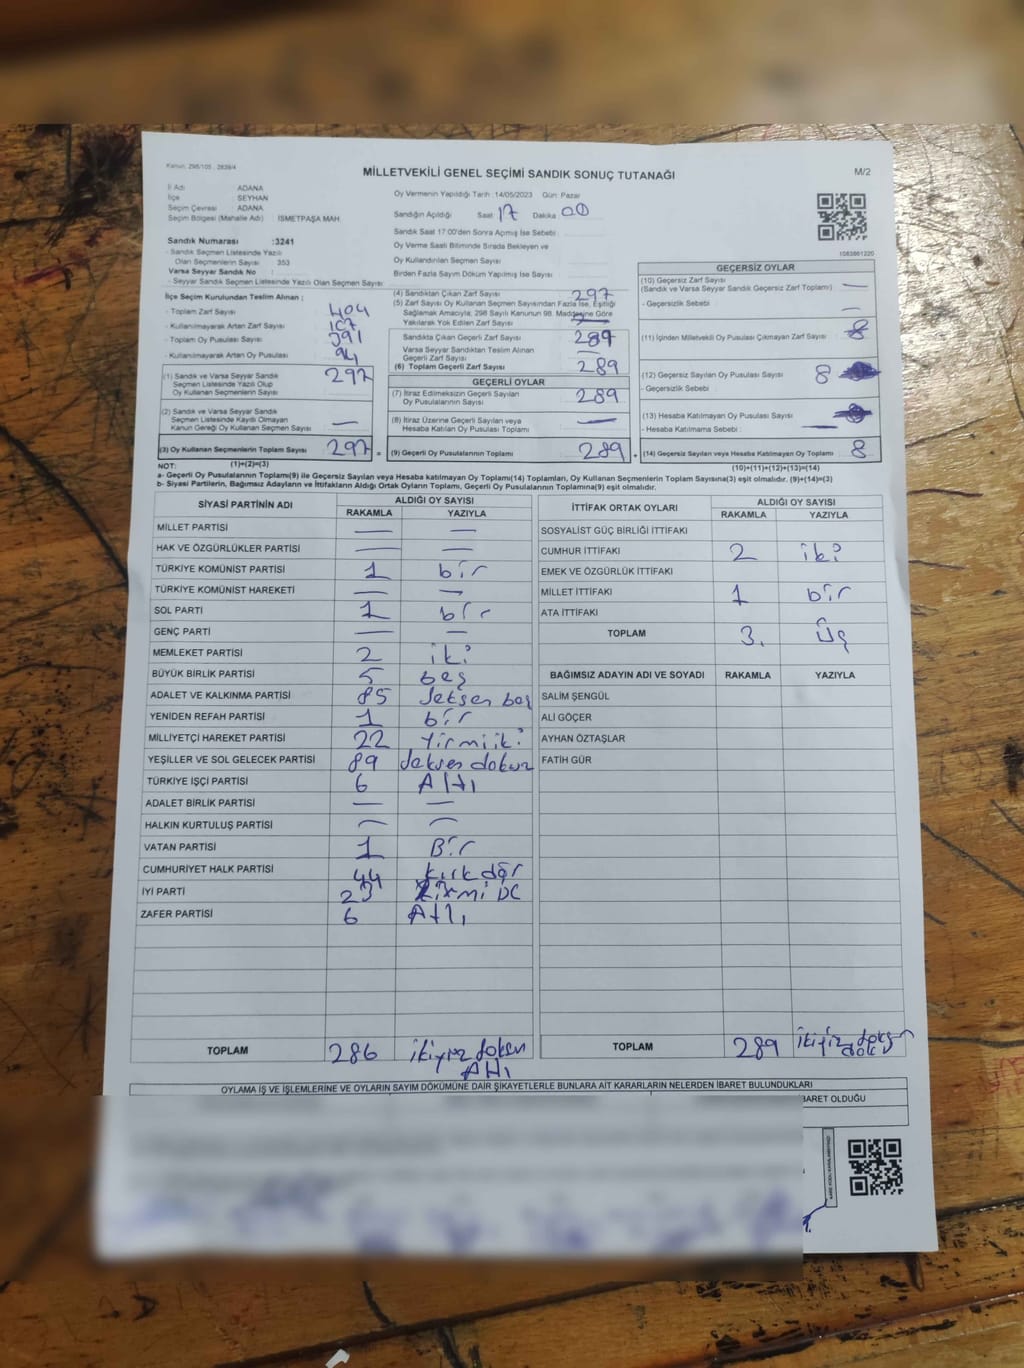 Kanun: 298/105 . 2839/4
MİLLETVEKİLİ GENEL SEÇİMİ SANDIK SONUÇ TUTANAĞI
M/2
İl Adı ADANA
İlçe SEYHAN
Seçim Çevresi ADANA
Seçim Bölgesi (Mahalle Adı) : İSMETPAŞA MAH.
Sandık Numarası :3241
- Sandık Seçmen Listesinde Yazılı
Olan Seçmenlerin Sayısı 353
Varsa Seyyar Sandık No :
- Seyyar Sandık Seçmen Listesinde Yazılı Olan Seçmen Sayısı
Oy Vermenin Yapıldığı Tarih : 14/05/2023 Gün: Pazar
Sandığın Açıldığı Saat 17 Dakika 00
Sandık Saat 17:00'den Sonra Açmış İse Sebebi :
Oy Verme Saati Bitiminde Sırada Bekleyen ve
Oy Kullandırılan Seçmen Sayısı :
Birden Fazla Sayım Döküm Yapılmış İse Sayısı :
1083861220
İlçe Seçim Kurulundan Teslim Alınan ;
- Toplam Zarf Sayısı 404
- Kullanılmayarak Artan Zarf Sayısı 107
- Toplam Oy Pusulası Sayısı 391
- Kullanılmayarak Artan Oy Pusulası 94
(1) Sandık ve Varsa Seyyar Sandık
Seçmen Listesinde Yazılı Olup
Oy Kullanan Seçmenlerin Sayısı 297
(2) Sandık ve Varsa Seyyar Sandık
Seçmen Listesinde Kaydı Olmayan
Kanun Gereği Oy Kullanan Seçmen Sayısı —
(3) Oy Kullanan Seçmenlerin Toplam Sayısı 297 =
(1)+(2)=(3)
(4) Sandıktan Çıkan Zarf Sayısı 297
(5) Zarf Sayısı Oy Kullanan Seçmen Sayısından Fazla İse, Eşitliği
Sağlamak Amacıyla; 298 Sayılı Kanunun 98. Maddesine Göre
Yakılarak Yok Edilen Zarf Sayısı
Sandıkta Çıkan Geçerli Zarf Sayısı 289
Varsa Seyyar Sandıktan Teslim Alınan
Geçerli Zarf Sayısı —
(6) Toplam Geçerli Zarf Sayısı 289
GEÇERLİ OYLAR
(7) İtiraz Edilmeksizin Geçerli Sayılan
Oy Pusulalarının Sayısı 289
(8) İtiraz Üzerine Geçerli Sayılan veya
Hesaba Katılan Oy Pusulası Toplamı —
(9) Geçerli Oy Pusulalarının Toplamı 289 +
GEÇERSİZ OYLAR
(10) Geçersiz Zarf Sayısı
(Sandık ve Varsa Seyyar Sandık Geçersiz Zarf Toplamı) —
- Geçersizlik Sebebi : —
(11) İçinden Milletvekili Oy Pusulası Çıkmayan Zarf Sayısı
(12) Geçersiz Sayılan Oy Pusulası Sayısı 8
- Geçersizlik Sebebi
(13) Hesaba Katılmayan Oy Pusulası Sayısı
- Hesaba Katılmama Sebebi : —
(14) Geçersiz Sayılan veya Hesaba Katılmayan Oy Toplamı 8
(10)+(11)+(12)+(13)=(14)
NOT:
a- Geçerli Oy Pusulalarının Toplamı(9) ile Geçersiz Sayılan veya Hesaba katılmayan Oy Toplamı(14) Toplamları, Oy Kullanan Seçmenlerin Toplam Sayısına(3) eşit olmalıdır. (9)+(14)=(3)
b- Siyasi Partilerin, Bağımsız Adayların ve İttifakların Aldığı Ortak Oyların Toplamı, Geçerli Oy Pusulalarının Toplamına(9) eşit olmalıdır.
SİYASİ PARTİNİN ADI ALDIĞI OY SAYISI
RAKAMLA YAZIYLA
MİLLET PARTİSİ — —
HAK VE ÖZGÜRLÜKLER PARTİSİ — —
TÜRKİYE KOMÜNİST PARTİSİ 1 bir
TÜRKİYE KOMÜNİST HAREKETİ — —
SOL PARTİ 1 bir
GENÇ PARTİ — —
MEMLEKET PARTİSİ 2 iki
BÜYÜK BİRLİK PARTİSİ 5 beş
ADALET VE KALKINMA PARTİSİ 85 Seksen beş
YENİDEN REFAH PARTİSİ 1 bir
MİLLİYETÇİ HAREKET PARTİSİ 22 Yirmi iki
YEŞİLLER VE SOL GELECEK PARTİSİ 89 Seksen dokuz
TÜRKİYE İŞÇİ PARTİSİ 6 Altı
ADALET BİRLİK PARTİSİ — —
HALKIN KURTULUŞ PARTİSİ — —
VATAN PARTİSİ 1 Bir
CUMHURİYET HALK PARTİSİ 44 kırk dör
İYİ PARTİ 23 Yirmi üç
ZAFER PARTİSİ 6 Altı
TOPLAM 286 ikiyüz doksen
Altı
İTTİFAK ORTAK OYLARI ALDIĞI OY SAYISI
RAKAMLA YAZIYLA
SOSYALİST GÜÇ BİRLİĞİ İTTİFAKI
CUMHUR İTTİFAKI 2 iki
EMEK VE ÖZGÜRLÜK İTTİFAKI
MİLLET İTTİFAKI 1 bir
ATA İTTİFAKI
TOPLAM 3. Üç
BAĞIMSIZ ADAYIN ADI VE SOYADI RAKAMLA YAZIYLA
SALİM ŞENGÜL
ALİ GÖÇER
AYHAN ÖZTAŞLAR
FATİH GÜR
TOPLAM 289 ikiyüz
OYLAMA İŞ VE İŞLEMLERİNE VE OYLARIN SAYIM DÖKÜMÜNE DAİR ŞİKAYETLERLE BUNLARA AİT KARARLARIN NELERDEN İBARET BULUNDUKLARI
BARET OLDUĞU